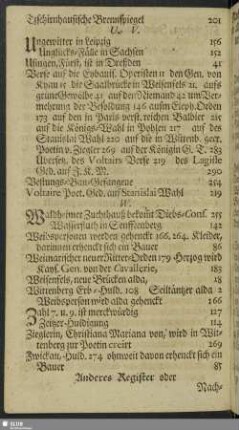 Tschirnhausische Brennspiegel 201
U. V.
Ungewitter in Leipzig 156
Unglücks-Fälle in Sachsen 152
Usingen, Fürst, ist in Dresden 41
Verse auf die Opernisten u den Gen. von
Kyau 15 die Saalbrücke in Weißenfels 21. aufs
grüne Gewölbe 41 auf den Niemand 42 um Ver-
mehrung der Besoldung 146 aufm Eleph. Orden
173 auf den in Paris verst. reichen Balbier 215
auf die Königs-Wahl in Pohlen 217 auf des
Stanislai Wahl 220 auf die in Wittenb. gecr.
Poetin v. Ziegler 269 auf der Königin G. T. 283
Übersetz. des Voltairs Verse 219 des Lugiste
Ged. auf J. K. M. 290
Vestungs-Bau-Gefangene 254
Voltaire Poet. Ged. auf Stanislai Wahl 219
W.
Waldheimer Zuchthauß bekomt Diebs-Conf. 255
Wasserfluth in Senfftenberg 142
Weibspersonen werden gehenckt 166, 264. Kleider,
darinnen erhenckt sich ein Bauer 86
Weimarischer neuer Ritter-Orden 179 Herzog wird
Kays. Gen. von der Cavallerie, 183
Weisenfels, neue Brücken alda, 18
Wittenberg Erb-Huld. 108 Seiltänzer alda 2
Weibsperson wird alda gehenckt 166
Zahl 7. u. 9. ist merckwürdig 127
Zeitzer-Huldigung 114
Zieglerin, Christiana Mariana von, wird in Wit-
tenberg zur Poetin creirt 269
Zwickau-Huld. 274 ohnweit davon erhenckt sich ein
Bauer 87
Anderes Register oder
Nach-